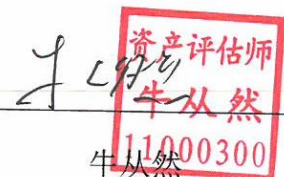 资产评估师
牛从然
11000300
牛从然